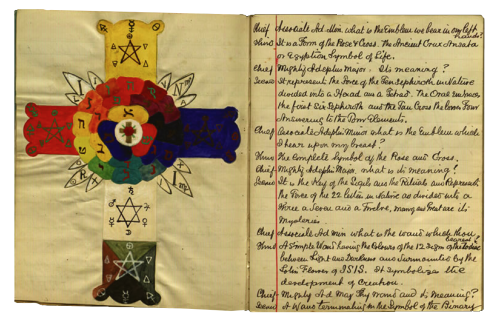 Chief Associate Ad Min what is the Emblem we bear in our left hands?
Third It is a Form of the Rose & Cross. The Ancient Crux Ansata
or Egyptian Symbol of Life.
Chief Mighty Adeptus Major. Its meaning?
Second It represents the Force of the Ten Sephiroth in Nature
divided into a Hexad and a Tetrad. The Oval embraces
the first Six Sephiroth and the Tau Cross the lower Four
Answering to the Four Elements.
Chief Associate Adeptus Minor what is the Emblem which
I bear upon my breast?
Third The Complete Symbol of the Rose and Cross.
Chief Mighty Adeptus Major, what is its meaning?
Second It is the Key of the Sigils and the Rituals and Represents
the Force of the 22 letters in Nature as divided into a
three a Seven and a Twelve, many and Great are its
Mysteries
Chief Associate Ad Min what is the wand which thou bearest?
Third A Simple Wand having the Colours of the 12 Signs of the Zodiac
between Light and Darkness and Surmounted by the
Lotus Flower of ISIS. It Symbolizes the
development of Creation.
Chief Mighty Ad Maj Thy Wand and its Meaning?
Second A Wand terminating in the Symbol of the Binary